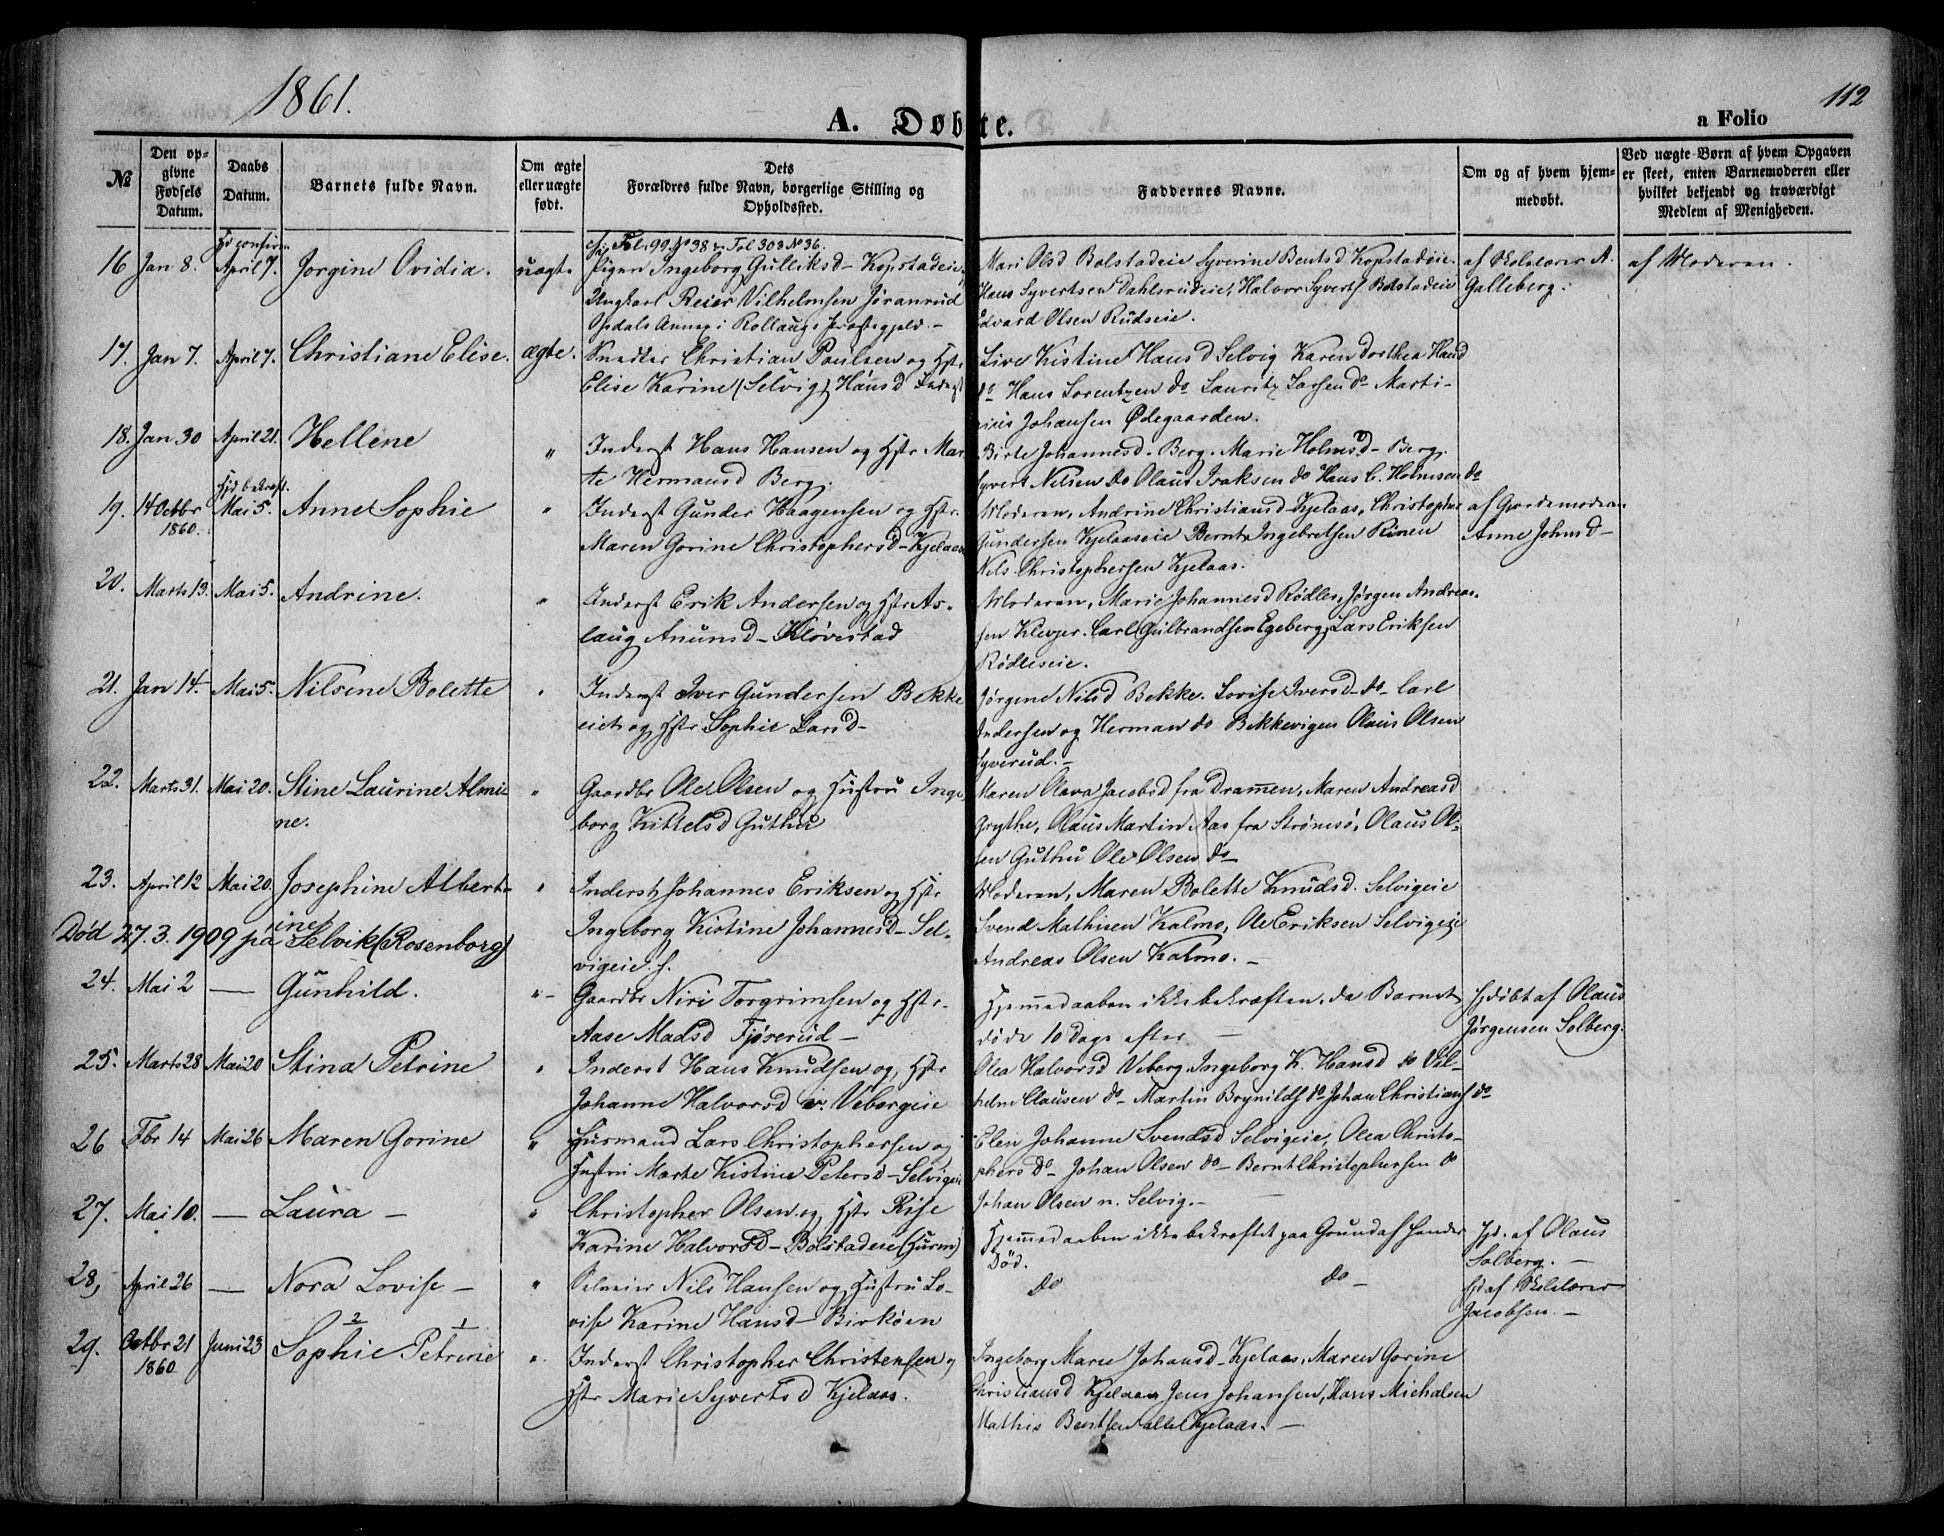 1861.
112
A. Døbte.
a Folio
№
Den opgivne Fødsels Datum.
Daabs Datum.
Barnets fulde Navn.
Om ægte eller uægte født.
Dets Forældres fulde Navn, borgerlige Stilling og Opholdssted.
Faddernes Navne.
Om og af hvem hjemmedøbt.
Ved uægte Børn af hvem Opgaven er skeet, enten Barnemoderen eller hvilket bekjendt og troværdigt Medlem af Menigheden.
Fol. 99 № 38 Fol 303 № 36.
16 Jan 8. April 7. Jorgine Ovidia. uægte Pigen Ingeborg Gulliksd - Kopstadeie,
Ungkarl Reier Vilhelmsen Jøranrud
Opdals Annex i Rollaugs Præstegjeld.-
Mari Olsd Bolstadeie Syverine Bentsd Kopstadeie.
Hans Syvertsen Dahlsrudeie, Halvor Syverts Bolstadeie
Edvard Olsen Rudseie.
af Skolelærer A.
Galleberg.
af Moderen.
17. Jan 7. April 7. Christiane Elise. ægte. Snedker Christian Paulsen og Hstr.
Elise Karine (Selvig) Hansd Inderst
Live Kistine Hansd Selvig Karen Dorthea Hansd
do Hans Lorentzen do Lauritz Larsen do Marti-
nius Johansen Ødegaarden.
18. Jan 30 April 21. Hellene " Inderst Hans Hansen og Hstr. Mar
te Hermansd Berg.
Birte Johannesd. Berg. Marie Holmsd - Berg.
Syvert Nilsen do Olaus Isaksen do Hans C. Holmsen do
Hjd bekræft.
19. 14 Octbr 1860. Mai 5. Anne Sophie " Inderst Gunder Haagensen og Hstr.
Maren Gorine Christophersd - Kjelaas
Moderen, Andrine Christiansd - Kjelaas, Christopher
Gundersen Kjelaaseie Bernt Ingebretsen Rinen
Nils Christophersen Kjelaas.
af Gjordemoderen
Anne Johnsd -
20. Marts 13. Mai 5. Andrine. " Inderst Erik Andersen og Hstr As-
laug Anunsd - Kløvestad
Moderen, Marie Johannesd Rødles, Jørgen Andreas-
sen Klevjer. Carl Gulbrandsen Egeberg, Lars Eriksen
Rødliseie.
21. Jan 14. Mai 5. Nilsene Bolette " Inderst Iver Gundersen Bekke
eie og Hstr Sophie Larsd -
Jørgene Nilsd Bekke. Lovise Iversd - do - Carl
Andersen og Herman do Bekkevigen Olaus Olsen
Syverud. -
22. Marts 31. Mai 20. Stine Laurine Almi-
ne. " Gaardbr Ole Olsen og Hustru Inge
borg Kittelsd Guthu
Maren Olava Jacobsd fra Dramen, Maren Andreasd
Grythe, Olaus Martin Aas fra Strømsø, Olaus Ol-
sen Guthu Ole Olsen do -
23. April 12 Mai 20. Josephine Albert-
ine " Inderst Johannes Eriksen og Hstr
Ingeborg Kistine Johannesd - Sel-
vigeie.
Død 27. 3. 1909 på Selvik (Rosenborg)
Moderen, Maren Bolette Knudsd. Selvigeie
Svend Mathisen Kalmo, Ole Eriksen Selvigeie
Andreas Olsen Kalmo. -
24. Mai 2 — Gunhild. " - Gaardbr Niri Torgrimsen og Hstr.
Aase Madsd Fjøserud -
Hjemmedaaben ikke bekræften, da Barnet
døde 10 Dage efter -
Hjdøbt af Olaus
Jørgensen Solberg.
25. Marts 28 Mai 20 Stina Petrine " Inderst Hans Knudsen og Hstr
Johanne Halvorsd Vebergeie
Olea Halvorsd Veberg Ingeborg K. Hansd do Vil-
helm Clausen do - Martin Brynilds do Johan Christians do
26 Fbr 14 Mai 26 Maren Gorine " Husmand Lars Christophersen og
Hustru Marte Kistine Petersd - Selvigeie
Elen Johanne Svendsd Selvigeie, Olea Christo-
phersd do - Johan Olsen do - Bernt Christophersen do
Johan Olsen n. Selvig. -
27. Mai 10. — Laura - " Christopher Olsen og Hstr Rise
Karine Halvorsd - Bolstadeie (Husm)
Hjemmedaaben ikke bekræftet paa Grund af hendes
Død.
Hjd. af Olaus
Solberg. -
28, April 26 — Nora Lovise - " Selveier Nils Hansen og Hustru Lo-
vise Karine Hansd - Birkøen
do do -
Hjd af Skolelærer
Jacobsen. -
29. Octbr 21 1860 Juni 23 2 1
Sophie Petrine " Inderst Christopher Christensen og
Hstr Marie Syvertsd Kjelaas.
Ingeborg Marie Johansd - Kjelaas, Maren Gorine
Christiansd Kjelaas Jens Johansen, Hans Michalsen
Mathis Bentsen alle Kjelaas. -